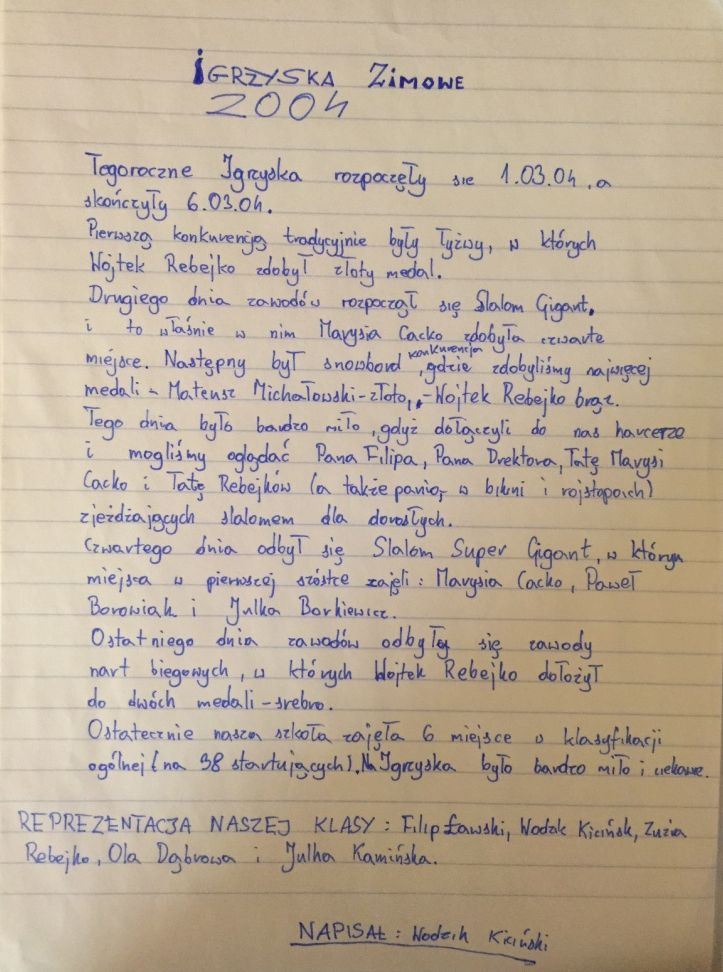 iGRZYSKA ZiMOWE
2004
Tegoroczne Igrzyska rozpoczęły się 1.03.04, a
skończyły 6.03.04.
Pierwszą konkurencją tradycyjnie były łyżwy, w których
Wojtek Rebejko zdobył złoty medal.
Drugiego dnia zawodów rozpoczął się Slalom Gigant,
i to właśnie w nim Marysia Cacko zdobyła czwarte
konkurencja
miejsce. Następny był snowbord, gdzie zdobyliśmy najwięcej
medali - Mateusz Michałowski - złoto, - Wojtek Rebejko brąz.
Tego dnia było bardzo miło, gdyż dołączyli do nas harcerze
i mogliśmy oglądać Pana Filipa, Pana Drektora, Tatę Marysi
Cacko i Tatę Rebejków (a także panią w bikini i rajstopach)
zjeżdżających slalomem dla dorosłych.
Czwartego dnia odbył się Slalom Super Gigant, w którym
miejsca w pierwszej szóstce zajęli: Marysia Cacko, Paweł
Borowiak i Julka Borkiewicz.
Ostatniego dnia zawodów odbyły się zawody
nart biegowych, w których Wojtek Rebejko dołożył
do dwóch medali - srebro.
Ostatecznie nasza szkoła zajęła 6 miejsce w klasyfikacji
ogólnej (na 38 startujących). Na Igrzyska było bardzo miło i ciekawe.
REPREZENTACJA NASZEJ KLASY: Filip Ławski, Wodzik Kicińsk, Zuzia
Rebejko, Ola Dąbrowa i Julka Kamińska.
NAPISAŁ: Wodzik Kiciński